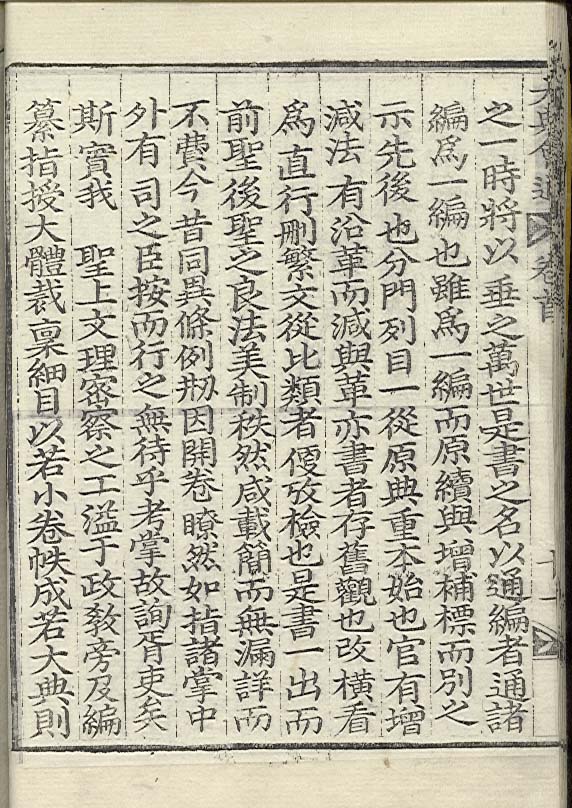 之一時將以垂之萬世是書之名以通編者通諸
編爲一編也雖爲一編而原續與增補標而別之
示先後也分門列目一從原典重本始也官有增
減法有沿革而減與革亦書者存舊觀也改橫看
爲直行刪繁文從比類者便攷檢也是書一出而
前聖後聖之良法美制秩然咸載簡而無漏詳而
不費今昔同異條例刱因開卷瞭然如指諸掌中
外有司之臣按而行之無待乎考掌故詢胥吏矣
斯實我 聖上文理密察之工溢于政敎旁及編
纂指授大體裁稟細目以若小卷帙成若大典則